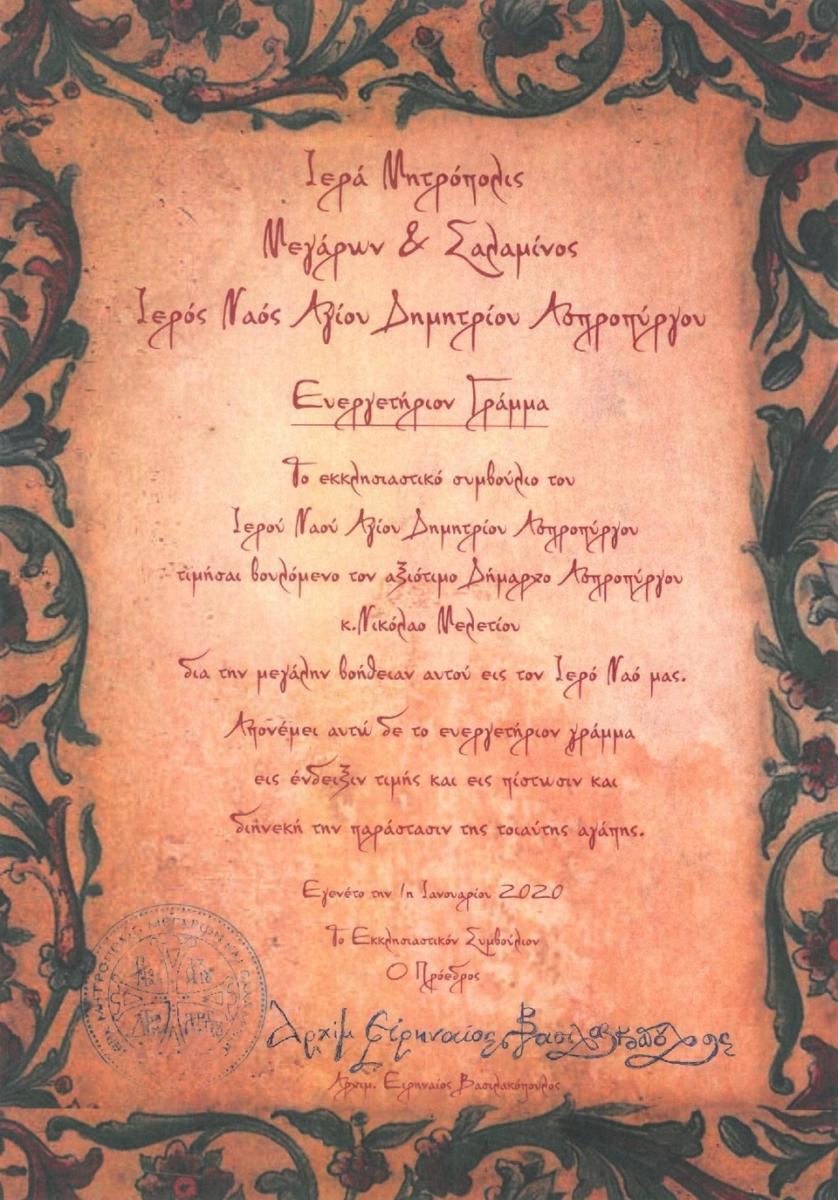 Ιερά Μητρόπολις
Μεγάρων & Σαλαμίνος
Ιερός Ναός Αγίου Δημητρίου Ασπροπύργου
Ευεργετήριον Γράμμα
Το εκκλησιαστικό συμβούλιο του
Ιερού Ναού Αγίου Δημητρίου Ασπροπύργου
τιμήσαι βουλόμενο τον αξιότιμο Δήμαρχο Ασπροπύργου
κ.Νικόλαο Μελετίου
δια την μεγάλην βοήθειαν αυτού εις τον Ιερό Ναό μας.
Απονέμει αυτώ δε το ευεργετήριον γράμμα
εις ένδειξιν τιμής και εις πίστωσιν και
διηνεκή την παράστασιν της τοιαύτης αγάπης.
Εγενέτο την 1η Ιανουαρίου 2020
Το Εκκλησιαστικόν Συμβούλιον
Ο Πρόεδρος
Αρχιμ Ειρηναίος Βασιλακόπουλος
Αρχιμ. Ειρηναίος Βασιλακόπουλος